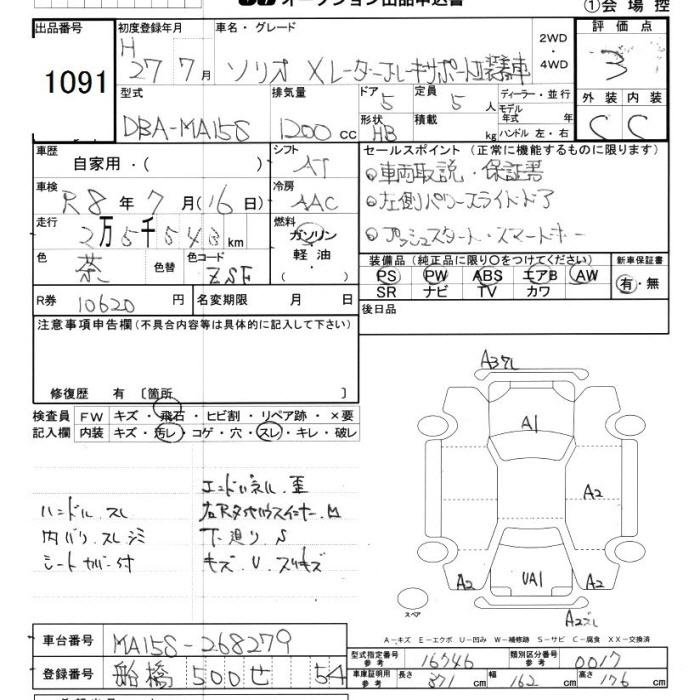 オークション出品申込書
①会場控
出品番号
1091
初度登録年月
H
27 7月
車名・グレード
ソリオ Xレーダーブレーキサポート装着車
2WD・
4WD
評価点
3
外装 内装
C C
型式
DBA-MA15S
排気量
1200cc
ドア
5
定員
5人
形状
HB
積載
kg
ディーラー・並行
モデル
年式 年
ハンドル 左・右
車歴
自家用・( )
シフト
AT
車検
R8年7月(16日)
冷房
AAC
走行
2万5千543km
燃料
ガソリン
軽油・
( )
色
茶
色替
色コード
ZSF
R券 10620円
名変期限 月 日
セールスポイント(正常に機能するものに限ります)
車両取説・保証書
左側パワースライドドア
プッシュスタート・スマートキー
装備品(純正品に限り○をつけてください)
新車保証書
PS PW ABS エアB AW
有・無
SR ナビ TV カワ
後日品
注意事項申告欄(不具合内容等は具体的に記入して下さい)
修復歴 有 〔箇所 〕
検査員
記入欄
FW キズ・飛石・ヒビ割・リペア跡・×要
内装 キズ・汚レ・コゲ・穴・スレ・キレ・破レ
エンドパネル.歪
ハンドル.スレ
内バリ.スレ.シミ
下廻り S
シートカバー付
キズ.U.スリキズ
A3ズレ
A1
A2
A2
A2
UA1
A2ズレ
スペア
A-キズ E-エクボ U-凹み W-補修跡 S-サビ C-腐食 XX-交換済
車台番号 MA15S-268279
登録番号 船橋 500 せ 54
型式指定番号
参考
16546
類別区分番号
参考
0017
車庫証明用
参考
長さ 371cm 幅 162cm 高さ 176cm